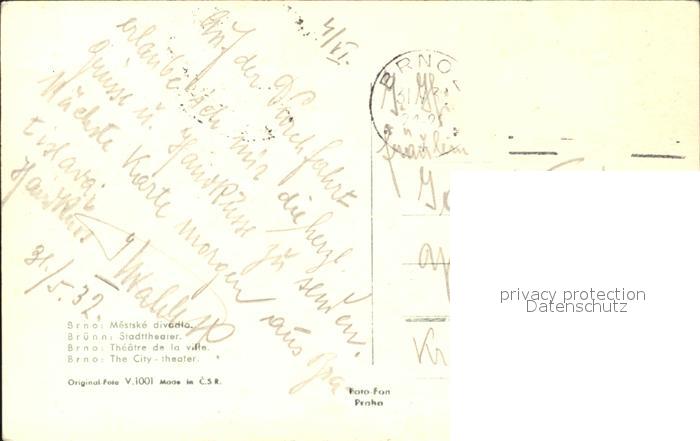 4/VI.
Auf der Durchfahrt
erlaube ich mir die herzl.
Grüsse u. Handküsse zu senden.
Nächste Karte morgen aus Bra-
tislava.
Handkuss
31./5.32.
BRNO
u
Fräulein
Brno: Městské divadlo.
Brünn: Stadttheater.
Brno: Théâtre de la ville.
Brno: The City-theater.
Original-Foto V.1001 Made in Č.S.R.
Foto-Fon
Praha
privacy protection
Datenschutz